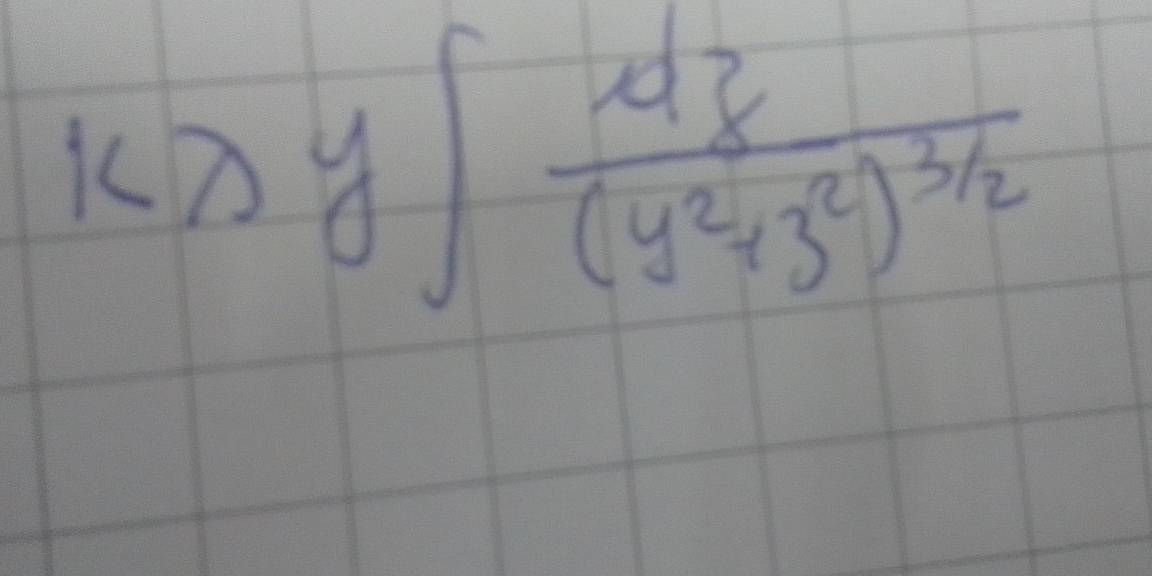 kλy∫ dz/(y²+z²)^3/2